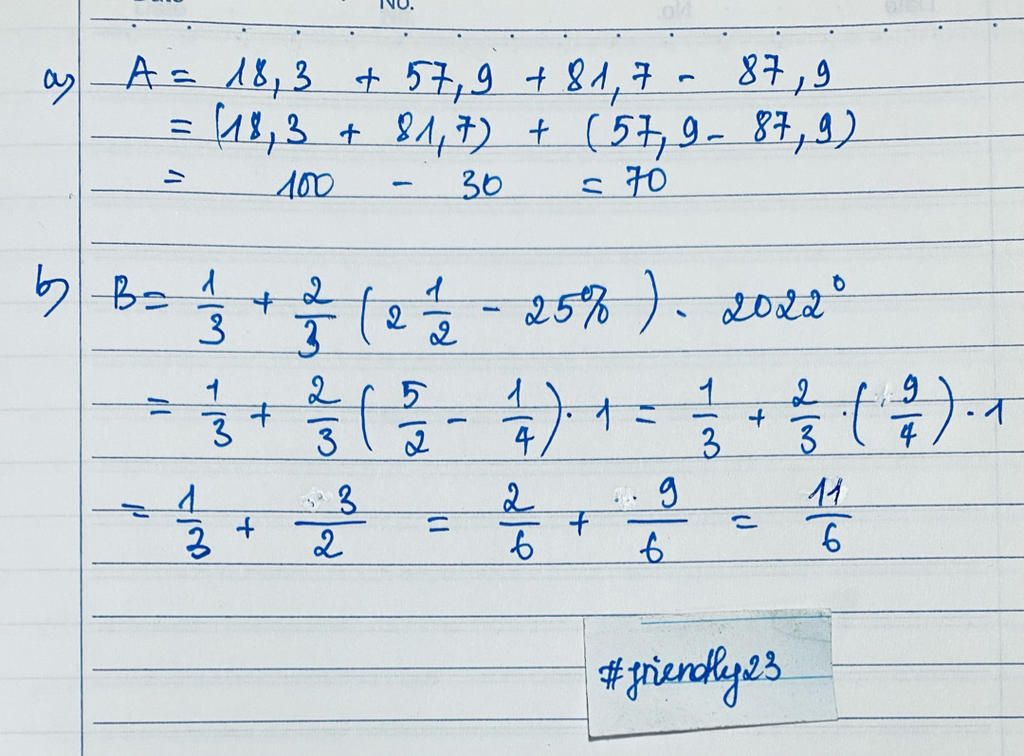 No.
a) A = 18,3 + 57,9 + 81,7 - 87,9
= (18,3 + 81,7) + (57,9 - 87,9)
= 100 - 30 = 70
b) B = 1/3 + 2/3 (2 1/2 - 25%) . 2022⁰
= 1/3 + 2/3 (5/2 - 1/4) . 1 = 1/3 + 2/3 . (9/4) . 1
= 1/3 + 3/2 = 2/6 + 9/6 = 11/6
#friendly23